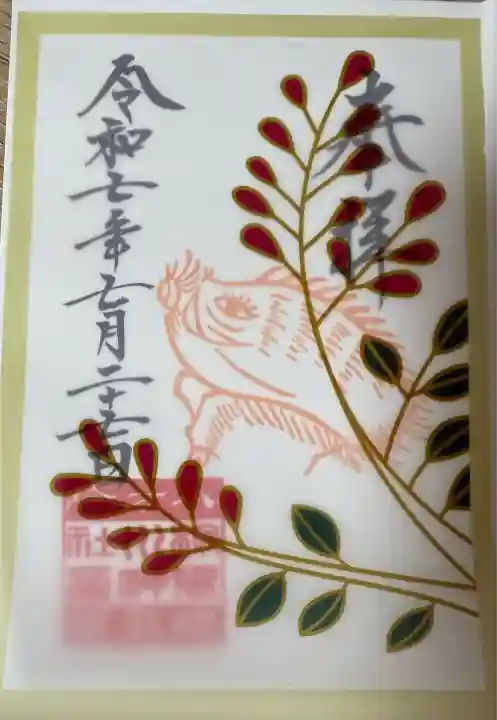 奉拝
令和七年七月二十七日